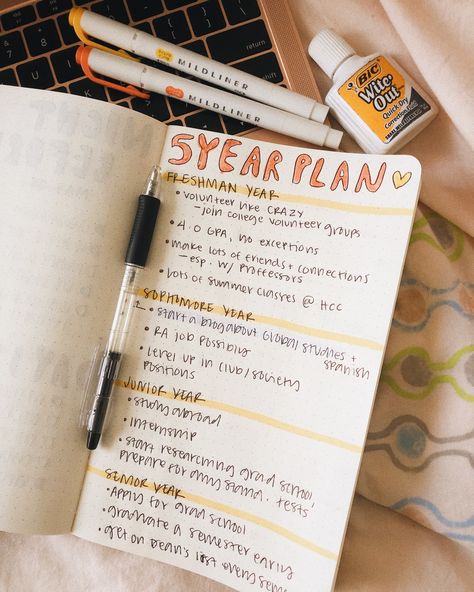 MILDLINER
MILDLINER
BIC
Wite·Out
Quick Dry
Correction Fluid
5 YEAR PLAN
FRESHMAN YEAR
• volunteer like CRAZY
- join college volunteer groups
• 4.0 GPA, no exceptions
• make lots of friends + connections
- esp. w/ professors
• lots of summer classes @ HCC
SOPHOMORE YEAR
• start a blog about global studies + spanish
• RA job possibly
• level up in club/society
positions
JUNIOR YEAR
• study abroad
• internship
• start researching grad school,
prepare for any stand. tests
SENIOR YEAR
• Apply for grad school
• graduate a semester early
• get on dean's list every sem